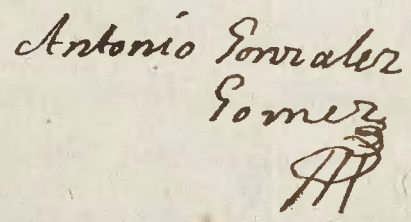 Antonio Gonzalez
Gomez